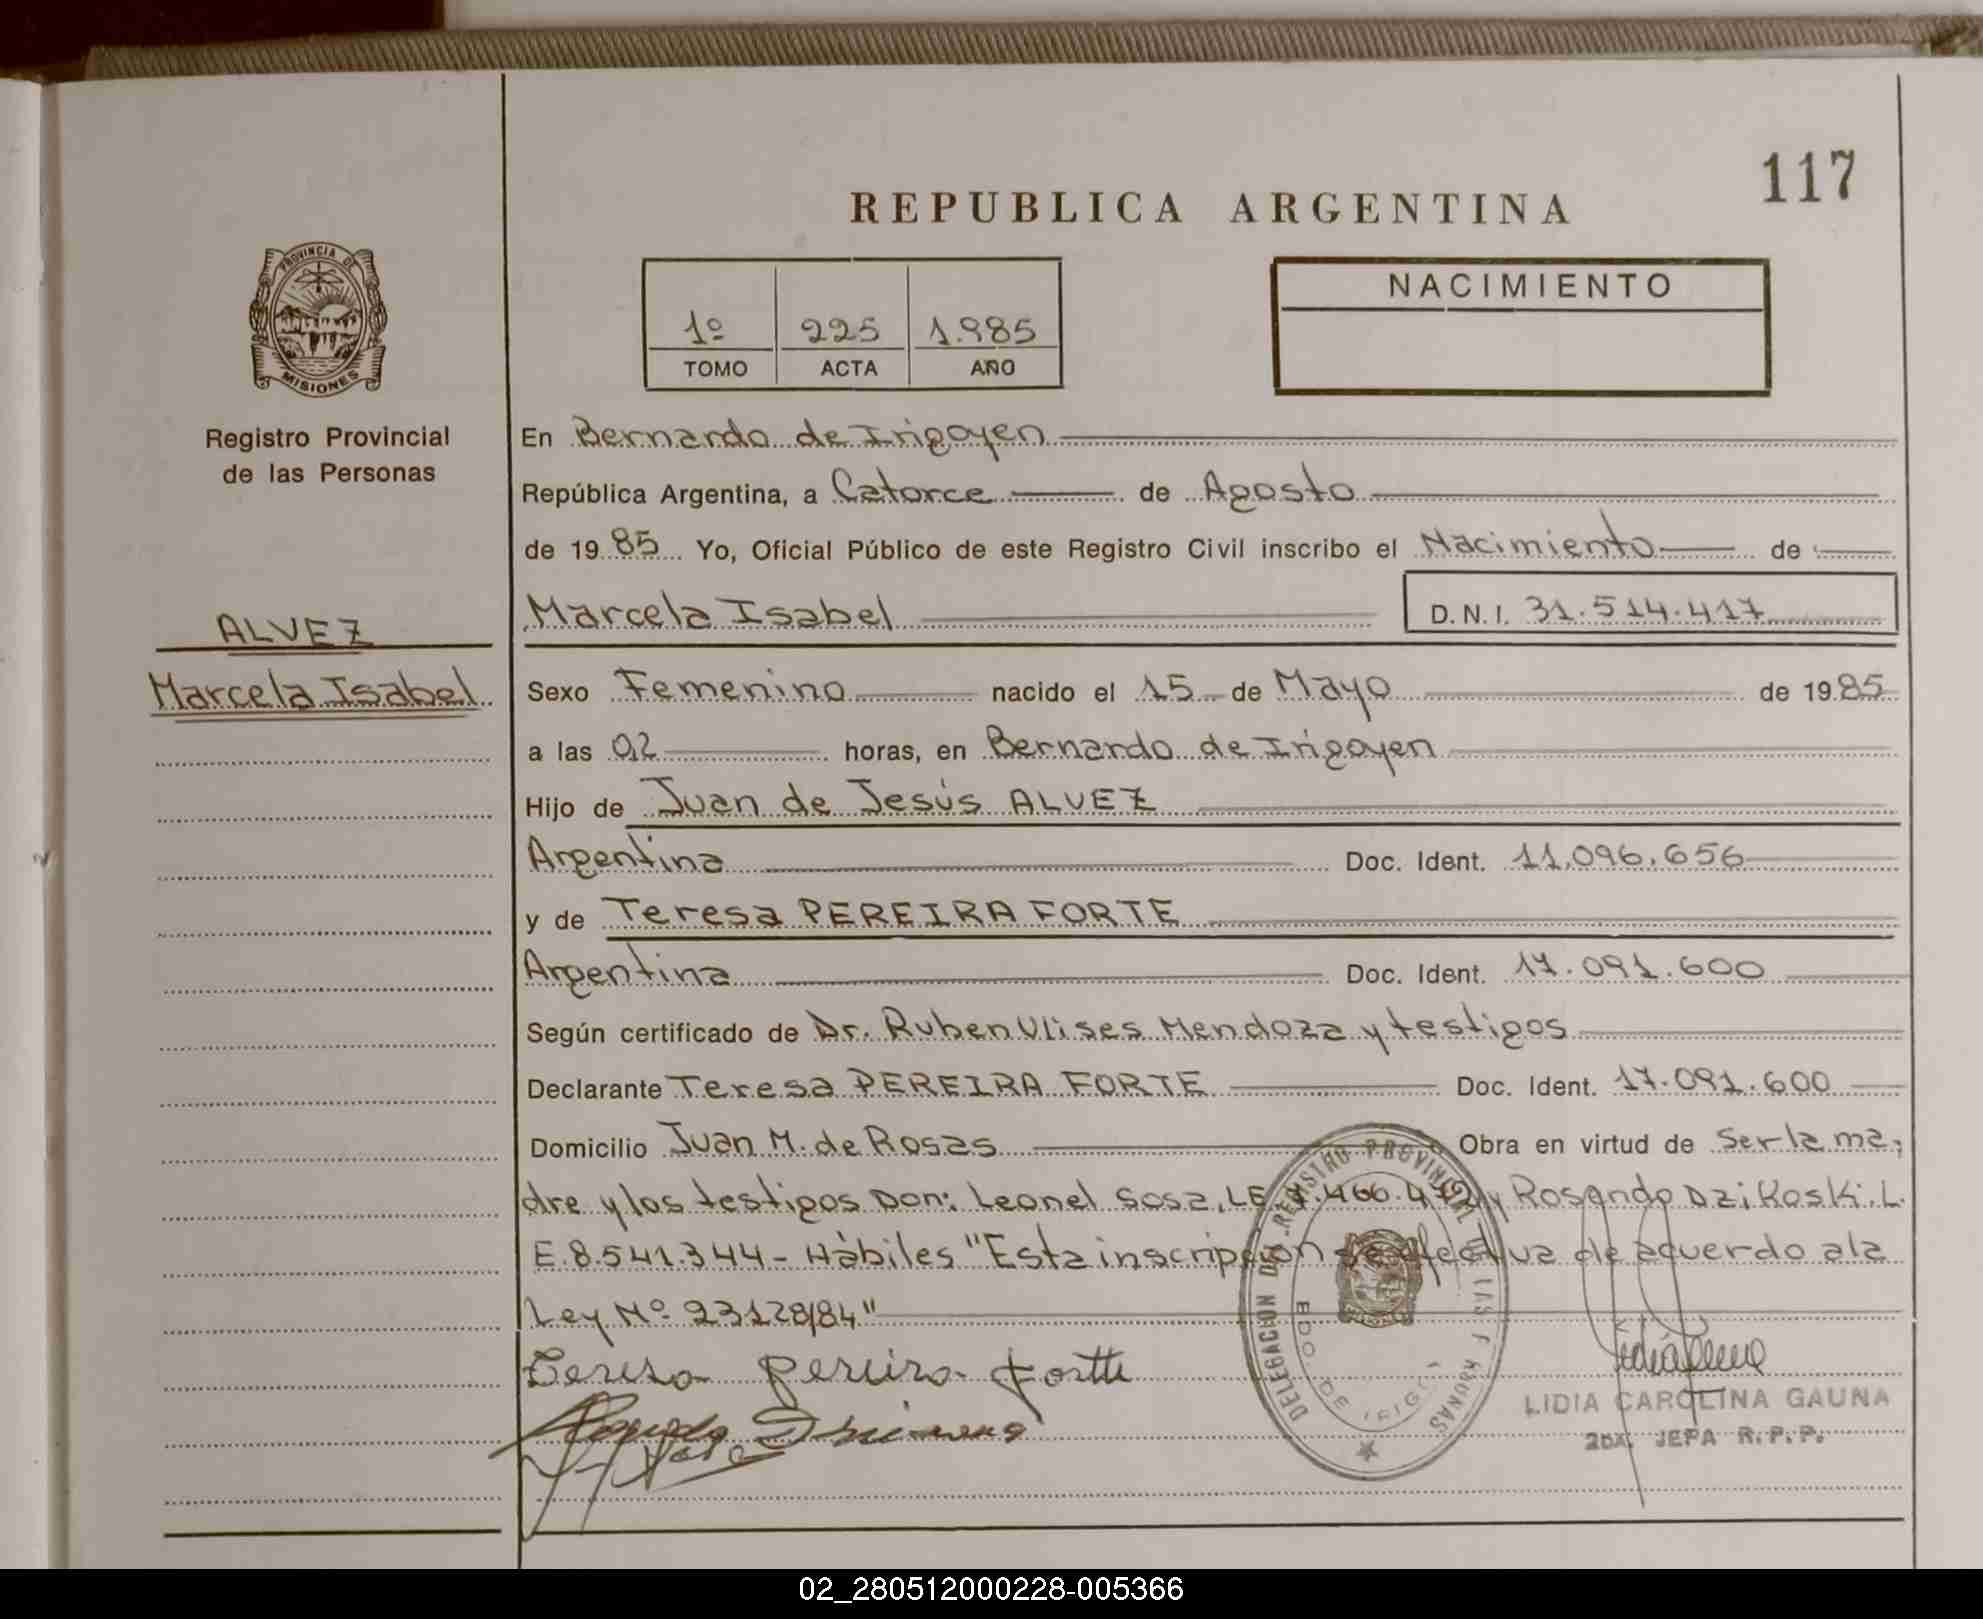 117
REPUBLICA ARGENTINA
PROVINCIA DE
MISIONES
Registro Provincial
de las Personas
1º 225 1.985
TOMO ACTA AÑO
NACIMIENTO
En Bernardo de Irigoyen
República Argentina, a Catorce de Agosto
de 1985 Yo, Oficial Público de este Registro Civil inscribo el Nacimiento de
ALVEZ
Marcela Isabel
Marcela Isabel D.N.I. 31.514.417
Sexo Femenino nacido el 15 de Mayo de 1985
a las 02 horas, en Bernardo de Irigoyen
Hijo de Juan de Jesús ALVEZ
Argentina Doc. Ident. 11.096.656
y de Teresa PEREIRA FORTE
Argentina Doc. Ident. 17.091.600
Según certificado de Dr. Ruben Ulises Mendoza y testigos
Declarante Teresa PEREIRA FORTE Doc. Ident. 17.091.600
Domicilio Juan M. de Rosas Obra en virtud de Ser la ma-
dre y los testigos Don: Leonel Sosa, LE y Rosendo Dzikoski. L.
E. 8.541.344- Hàbiles "Esta inscripcion se efectua de acuerdo a la
Ley Nº 23128/84"
Teresa pereira fortte
DELEGACION DEL REGISTRO PROVINCIAL DE LAS PERSONAS
BDO. DE IRIGOY
LIDIA CAROLINA GAUNA
2DA. JEFA R.P.P.
02_280512000228-005366